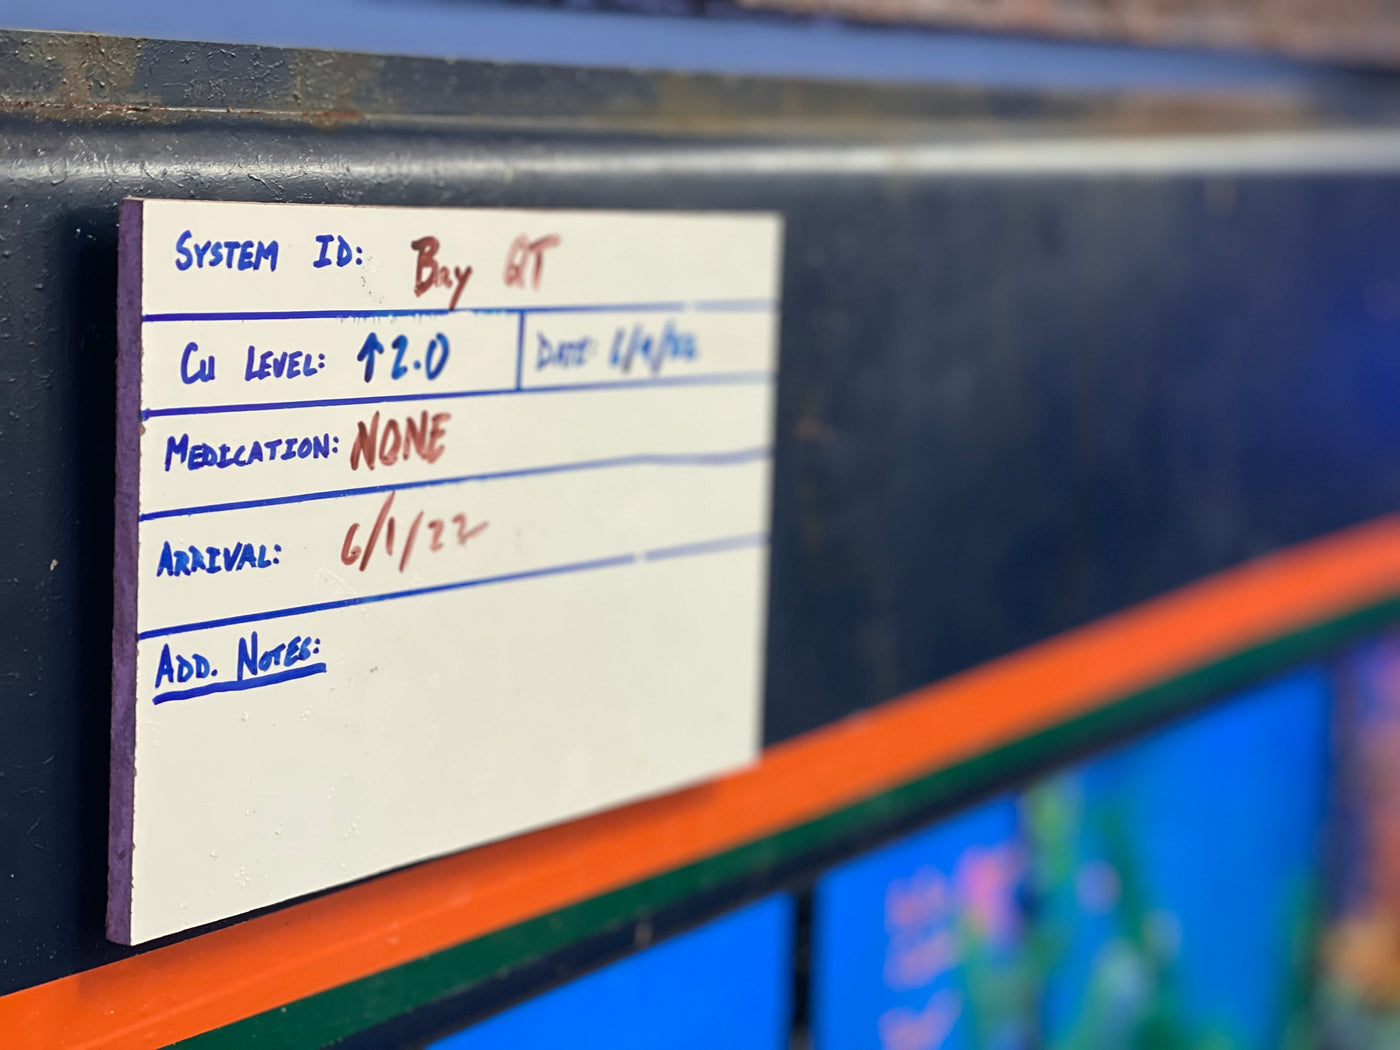 System ID: Bay QT
Cu Level: ↑2.0
Date: 6/9/22
Medication: NONE
Arrival: 6/1/22
Add. Notes: